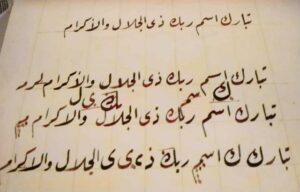 تبارك اسم ربك ذى الجلال والأكرام
تبارك اسم ربك ذى الجلال والأكرام
ك سم بك ى ل
تبارك اسم ربك ذى الجلال والأكرام
تبارك ك اسم ربك ذى ى ى الجلال والأكرام